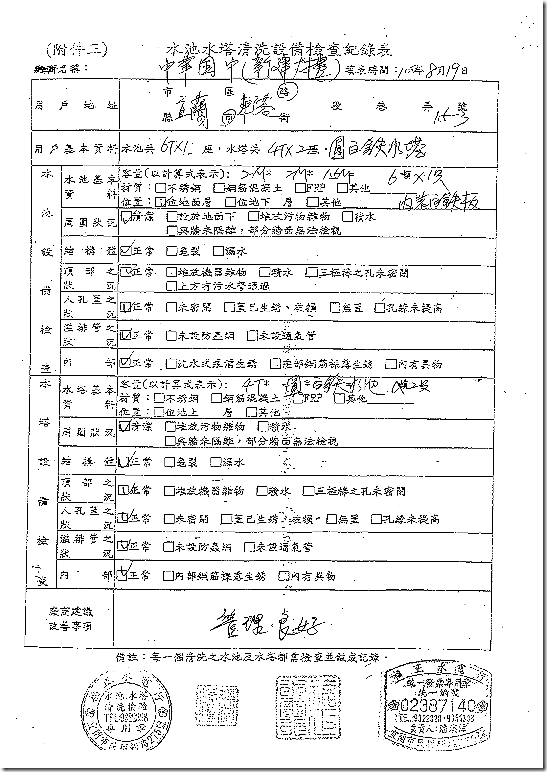 (附件三) 水池水塔清洗設備檢查紀錄表
名稱：中華國中(新建大樓) 填表時間：105年8月19日
用戶地址 宜蘭 市縣 區 路街 段 巷 弄 15-3 號
用戶基本資料 水池共 6T×1 座，水塔共 4T×2 座
水池設備檢查
水池基本資料 容量(以計算式表示)：2M× 2M× 1.5M= 6噸×1只
材質：□不銹鋼 □鋼筋混凝土 □FRP □其他
位置：□位地面層 □位地下 層 □其他
周圍狀況 ☑清潔 □設於地面下 □堆放污物雜物 □積水
□與牆未隔離，部分牆面無法檢視
結構體 ☑正常 □龜裂 □漏水
頂部之狀況 ☑正常 □堆放機器雜物 □積水 □三極棒之孔未密閉
□上方有污水管通過
人孔蓋之狀況 ☑正常 □未密閉 □蓋已生銹、破損 □無蓋 □孔緣未提高
溢排管之狀況 ☑正常 □未設防蟲網 □未設通氣管
內部 ☑正常 □沈水式泵浦生銹 □底部鋼筋裸露生銹 □內有異物
水塔設備檢查
水塔基本資料 容量(以計算式表示)：4T×
材質：□不銹鋼 □鋼筋混凝土 □FRP □其他
位置：□位地上 層 □其他
周圍狀況 ☑清潔 □堆放污物雜物 □積水
□與牆未隔離，部分牆面無法檢視
結構體 ☑正常 □龜裂 □漏水
頂部之狀況 ☑正常 □堆放機器雜物 □積水 □三極棒之孔未密閉
人孔蓋之狀況 ☑正常 □未密閉 □蓋已生銹、破損 □無蓋 □孔緣未提高
溢排管之狀況 ☑正常 □未設防蟲網 □未設通氣管
內部 ☑正常 □內部鋼筋裸露生銹 □內有異物
廠商建議改善事項 管理良好
備註：每一個清洗之水池及水塔都需檢查並做成記錄。
水池水塔
清洗檢驗
專用章
統一發票專用章
統一編號
02387140